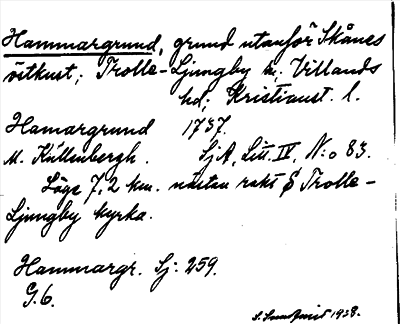 Hammargrund, grund utanför Skånes
östkust; Trolle-Ljungby sn; Villands
hd; Kristianst. l.
Hamargrund 1737.
M. Kullenbergh. SjA, Litt. IV, N:o 83.
Läge 7,2 km. nästan rakt S Trolle-
Ljungby kyrka.
Hammargr. Sj: 259.
G.6.
1938.